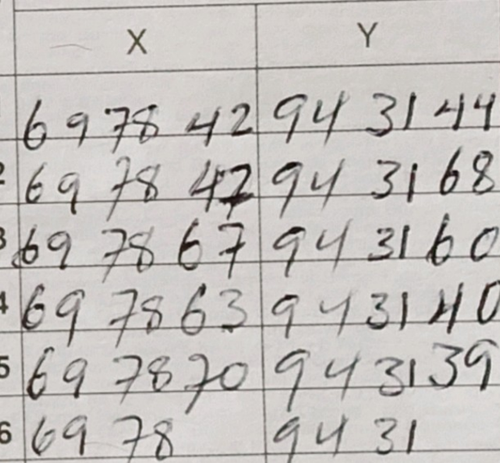 X Y
69 78 42 94 31 44
2 69 78 47 94 31 68
3 69 78 67 94 31 60
4 69 78 63 94 31 40
5 69 78 70 94 31 39
6 69 78 94 31